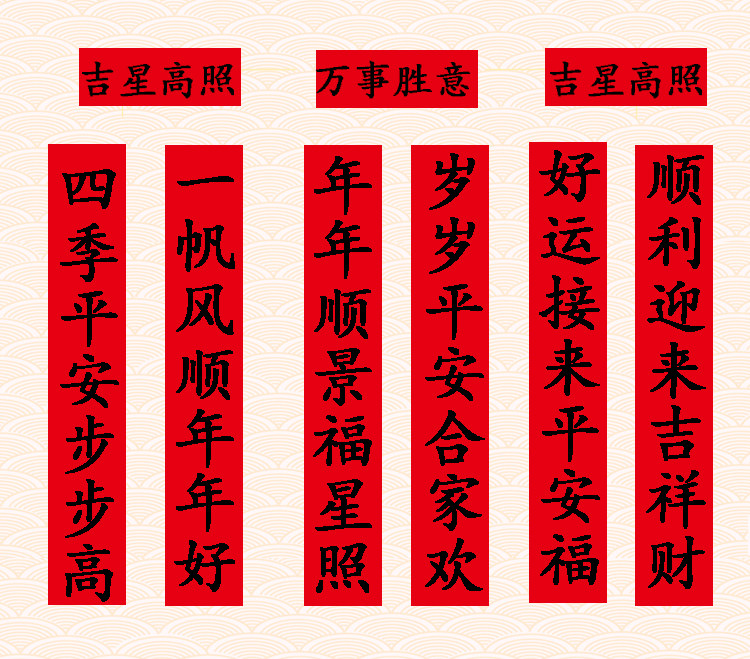 吉星高照
万事胜意
吉星高照
四季平安步步高
一帆风顺年年好
年年顺景福星照
岁岁平安合家欢
好运接来平安福
顺利迎来吉祥财